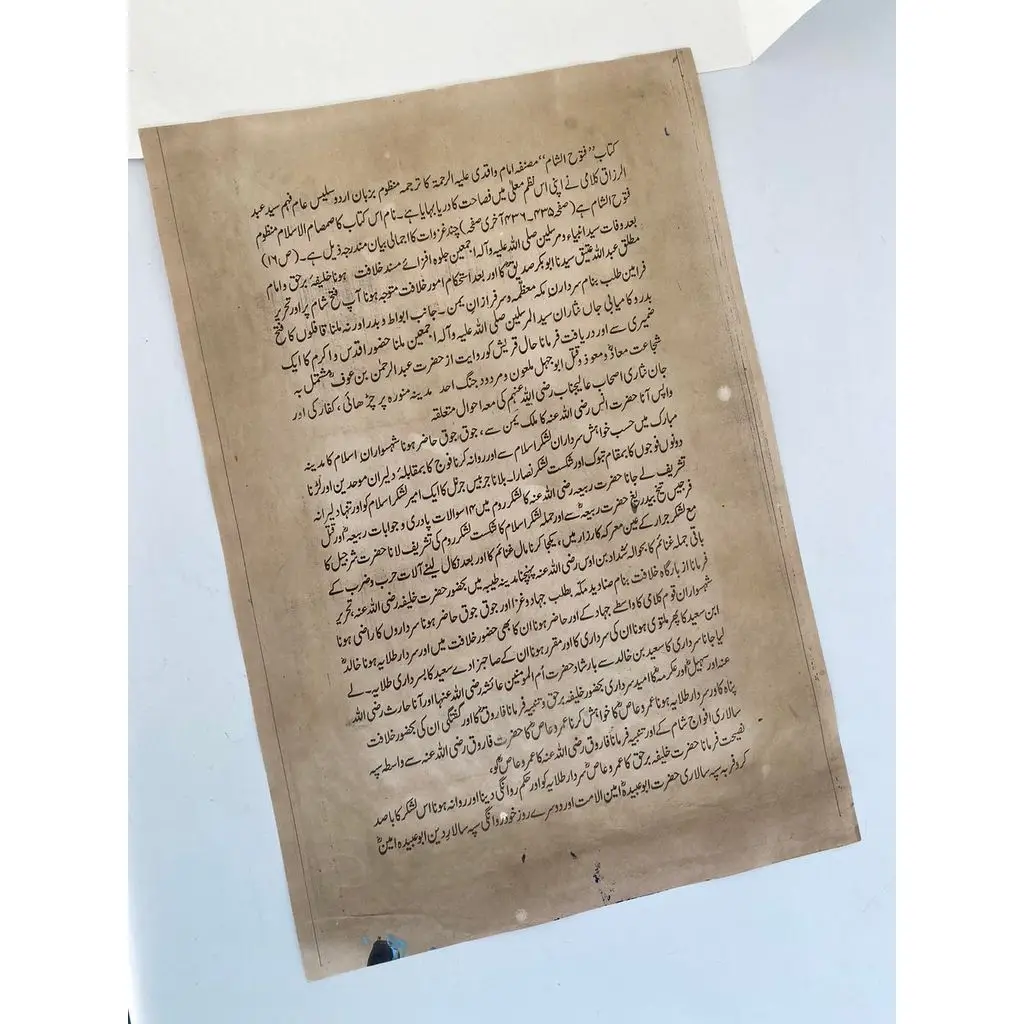 کتاب ’’فتوح الشام‘‘ مصنفہ امام واقدی علیہ الرحمۃ کا ترجمہ منظوم بزبان اردو سلیس عام فہم سید عبد
الرزاق کلامی نے اپنی اس نظم معلیٰ میں فصاحت کا دریا بہایا ہے۔ نام اس کتاب کا صمصام الاسلام منظوم
فتوح الشام ہے (صفحہ ۴۳۵۔۴۳۶ آخری صفحہ) چند غزوات کا اجمالی بیان مندرجہ ذیل ہے۔ (ص ۱۶)
بعد وفات سید انبیاء و مرسلین صلی اللہ علیہ وآلہ اجمعین جلوہ افزائے مسند خلافت ہونا خلیفۂ برحق و امام
مطلق عبد اللہ عتیق سیدنا ابوبکر صدیقؓ کا اور بعد استحکام امور خلافت متوجہ ہونا آپ فتح شام پر اور تحریر
فرامین طلب بنام سردارن مکہ معظمہ و سرفرازان یمن۔ جانب ابواط و بدر اور نہ ملنا قافلوں کا فتح
بدر و کامیابی جاں نثاران سید المرسلین صلی اللہ علیہ وآلہ اجمعین ملنا حضور اقدس و اکرم کا ایک
ضمیری سے اور دریافت فرمانا حال قریش کو روایت از حضرت عبد الرحمٰن بن عوفؓ مشتمل بہ
شجاعت معاذؓ و معوذ و قتل ابو جہل ملعون و مردود جنگ احد مدینہ منورہ پر چڑھائی، کفار کی اور
جان نثاری اصحاب عالیجناب رضی اللہ عنہم کی معہ احوال متعلقہ
واپس آنا حضرت انس رضی اللہ عنہ کا ملک یمن سے، جوق جوق حاضر ہونا شہسواران اسلام کا مدینہ
مبارک میں حسب خواہش سرداران لشکر اسلام سے اور روانہ کرنا فوج کا بمقابلہ دلیران موحدین اور لڑنا
دونوں فوجوں کا بمقام تبوک اور شکست لشکر نصارا۔ بلانا جرجیس جرنل کا ایک امیر لشکر اسلام کو اور تنہا دلیرانہ
تشریف لے جانا حضرت ربیعہ رضی اللہ عنہ کا لشکر روم میں ۱۴ سوالات پادری و جوابات ربیعہؓ اور قتل
فرجیس تیغ بیدریغ حضرت ربیعہؓ سے اور حملہ لشکر اسلام کا شکست لشکر روم کی تشریف لانا حضرت شرجیل کا
مع لشکر جرار کے عین معرکہ کارزار میں، یکجا کرنا مال غنائم کا اور بعد نکال لینے آلات حرب و ضرب کے
باقی جملہ غنائم کا بحوالہ شداد بن اوس رضی اللہ عنہ پہنچنا مدینہ طیبہ میں بحضور حضرت خلیفہ رضی اللہ عنہ، تحریر
فرمانا از بارگاہ خلافت بنام صنادید مکہ بطلب جہاد و غزا اور جوق جوق حاضر ہونا سرداروں کا راضی ہونا
شہسواران قوم کلامی کا واسطے جہاد کے اور حاضر ہونا ان کا بھی حضور خلافت میں اور سردار طلایہ ہونا خالدؓ
ابن سعید کا پھر ملتوی ہونا ان کی سرداری کا اور مقرر ہونا ان کے صاحبزادے سعید کا بسرداری طلایہ۔ لے
لیا جانا سرداری کا سعید بن خالد سے بارشاد حضرت اُم المومنین عائشہ رضی اللہ عنہا اور آنا حارث رضی اللہ
عنہ اور سہیلؓ اور عکرمہؓ کا امید سرداری بحضور خلیفہ برحق و تنبیہ فرمانا فاروقؓ کا اور گفتگی ان کی بحضور خلافت
پناہ کا اور سردار طلایہ ہونا عمرو عاصؓ کا خواہش کرنا عمرو عاصؓ کا حضرت فاروق رضی اللہ عنہ سے واسطہ سپہ
سالاری افواج شام کے اور تنبیہ فرمانا فاروق رضی اللہ عنہ کا عمرو عاصؓ کو،
نصیحت فرمانا حضرت خلیفہ برحق کا عمرو عاصؓ سردار طلایہ کو اور حکم روانگی دینا اور روانہ ہونا اس لشکر کا باصد
کروفر بہ سپہ سالاری حضرت ابوعبیدہؓ امین الامت اور دوسرے روز خود روانگی سپہ سالار دین ابوعبیدہ امینؓ